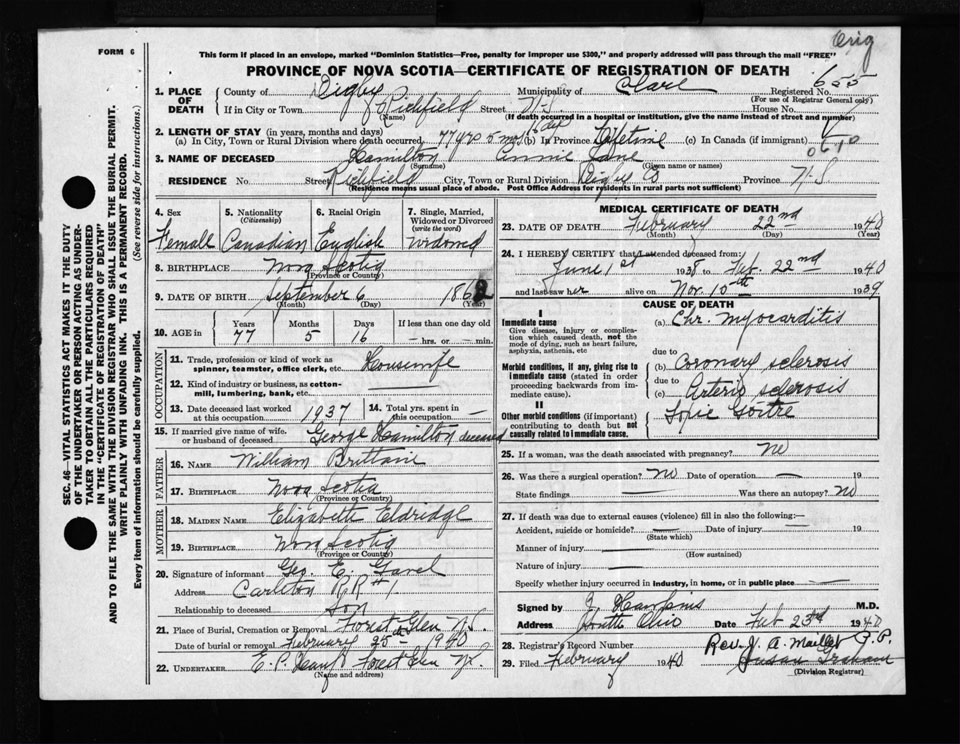 Orig
FORM 6
This form if placed in an envelope, marked "Dominion Statistics—Free, penalty for improper use $300," and properly addressed will pass through the mail "FREE"
PROVINCE OF NOVA SCOTIA—CERTIFICATE OF REGISTRATION OF DEATH
655
1. PLACE OF DEATH County of Digby Municipality of Clare Registered No.
(For use of Registrar General only)
If in City or Town Richfield Street N.S. House No.
(Name) (If death occurred in a hospital or institution, give the name instead of street and number)
2. LENGTH OF STAY (in years, months and days)
(a) In City, Town or Rural Division where death occurred 77 yrs 5 mos 16 day (b) In Province Lifetime (c) In Canada (if immigrant)
3. NAME OF DECEASED Hamilton Annie Jane
(Surname) (Given name or names)
RESIDENCE No. Street Richfield City, Town or Rural Division Digby Co Province N-S
(Residence means usual place of abode. Post Office Address for residents in rural parts not sufficient)
4. Sex Female
5. Nationality (Citizenship) Canadian
6. Racial Origin English
7. Single, Married, Widowed or Divorced (write the word) Widowed
8. BIRTHPLACE Nova Scotia
(Province or Country)
9. DATE OF BIRTH September 6 1862
(Month) (Day) (Year)
10. AGE in Years Months Days If less than one day old
77 5 16 — hrs. or — min.
OCCUPATION
11. Trade, profession or kind of work as spinner, teamster, office clerk, etc. Housewife
12. Kind of industry or business, as cotton-mill, lumbering, bank, etc.
13. Date deceased last worked at this occupation 1937 14. Total yrs. spent in this occupation —
15. If married give name of wife or husband of deceased George Hamilton deceased
FATHER
16. NAME William Brittain
17. BIRTHPLACE Nova Scotia
(Province or Country)
MOTHER
18. MAIDEN NAME Elizabeth Eldridge
19. BIRTHPLACE Nova Scotia
(Province or Country)
20. Signature of informant Geo. E. Gavel
Address Carleton R.R # 1
Relationship to deceased son
21. Place of Burial, Cremation or Removal Forest Glen N.S.
Date of burial or removal February 25 1940
22. UNDERTAKER E. P. Forest Glen N.S.
(Name and address)
MEDICAL CERTIFICATE OF DEATH
23. DATE OF DEATH February 22nd 1940
(Month) (Day) (Year)
24. I HEREBY CERTIFY that I attended deceased from:
June 1st 1938 to Feb. 22nd 1940
and last saw her alive on Nov. 10th 1939
CAUSE OF DEATH
I
Immediate cause
Give disease, injury or complication which caused death, not the mode of dying, such as heart failure, asphyxia, asthenia, etc
(a) Chr. Myocarditis
due to
Morbid conditions, if any, giving rise to immediate cause (stated in order proceeding backwards from immediate cause).
(b) Coronary sclerosis
due to
(c) Arterio sclerosis
II
Other morbid conditions (if important) contributing to death but not causally related to immediate cause.
Goitre
25. If a woman, was the death associated with pregnancy? No
26. Was there a surgical operation? No Date of operation — 19
State findings — Was there an autopsy? No
27. If death was due to external causes (violence) fill in also the following:—
Accident, suicide or homicide? — Date of injury — 19
(State which)
Manner of injury —
(How sustained)
Nature of injury —
Specify whether injury occurred in industry, in home, or in public place —
Signed by Hawkins M.D.
Address South Ohio Date Feb 23rd 1940
28. Registrar's Record Number Rev. J. A. Maillet P.P.
29. Filed February 1940
(Division Registrar)
SEC. 46—VITAL STATISTICS ACT MAKES IT THE DUTY
OF THE UNDERTAKER OR PERSON ACTING AS UNDER-
TAKER TO OBTAIN ALL THE PARTICULARS REQUIRED
IN THE "CERTIFICATE OF REGISTRATION OF DEATH"
AND TO FILE THE SAME WITH THE DIVISION REGISTRAR WHO SHALL ISSUE THE BURIAL PERMIT.
WRITE PLAINLY WITH UNFADING INK. THIS IS A PERMANENT RECORD.
Every item of information should be carefully supplied. (See reverse side for instructions.)